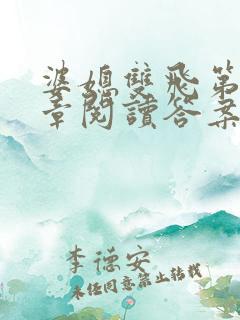 婆媳雙飛第
章閱讀答案
李德安
未经同意禁止转载